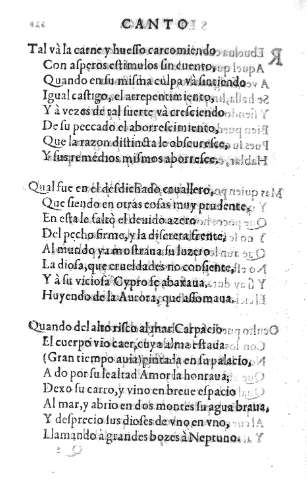 CANTO
Tal và la carne y huesso carcomiendo
Con asperos estimulos sin cuento,
Quando en su misma culpa và sintiendo
Igual castigo, el arrepentimiento,
Y à vezes de tal suerte và cresciendo
De su peccado el aborrescimiento,
Que la razon distincta le obscuresce,
Y sus remedios mismos aborresce.
Qual fue en el desdichado cauallero,
Que siendo en otras cosas muy prudente,
En esta le faltò el deuido azero
Del pecho firme, y la discreta frente,
Al mundo ya mostraua su luzero
La diosa, que crueldades no consiente,
Y à su viciosa Cypro se abaxaua,
Huyendo de la Aurora, que assomaua.
Quando del alto risco al mar Carpacio
El cuerpo vio caer, cuya alma estaua
(Gran tiempo auia) pintada en su palacio,
A do por su lealtad Amor la honraua;
Dexo su carro, y vino en breue espacio
Al mar, y abrio en dos montes su agua braua,
Y desprecio sus dioses de vno en vno,
Llamando à grandes bozes à Neptuno.